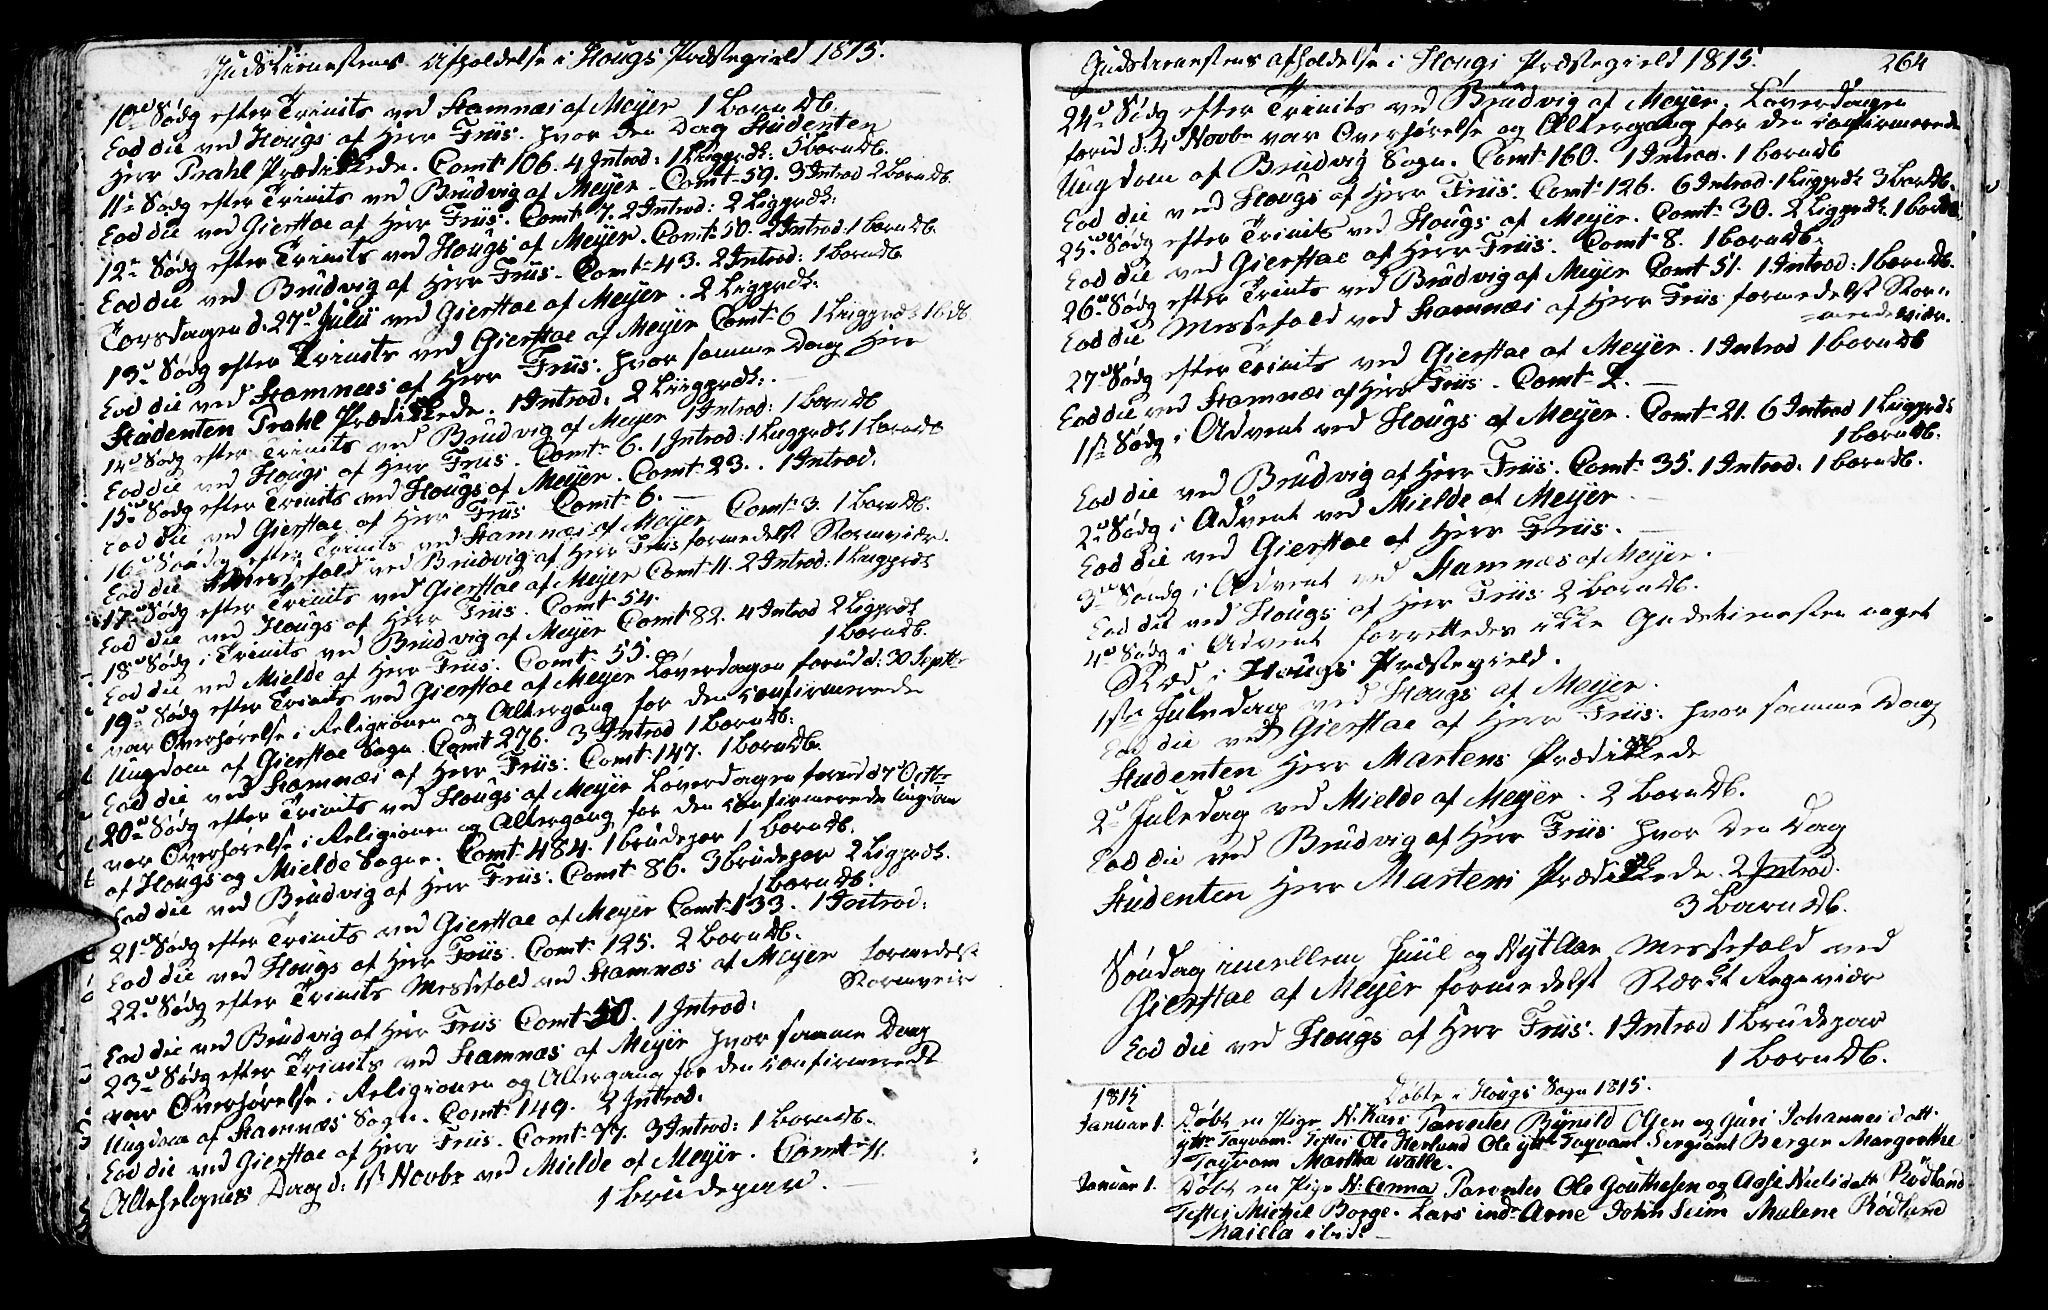 Gudstienestens Afholdelse i Hougs Præstegield 1815.
10d Sødg efter Trinits ved Stamnæs af Meyer 1 barn Db.
Eod die ved Hougs af Herr Friis. hvor den Dag Studenten
Herr Prahl Prædikkede. Comt 106. 4 Introd: 1 Liigprdk: 3 børn Db.
11te Sødg efter Trinits ved Brudvig af Meyer. Comt 59. 3 Introd 2 børn Db.
Eod die ved Gierstae af Herr Friis. Comt 7. 2 Introd: 2 Ligprdk:
12te Sødg efter Trinits ved Hougs af Meyer. Comt 50. 2 Introd: 1 barn Db.
Eod die ved Brudvig af Herr Friis. Comt 43. 2 Introd: 1 barn Db
Torsdagen d: 27d Julii ved Gierstae af Meyer. 2 Ligprdk:
13d Sødg efter Trinits ved Gierstae af Meyer Comt 6 1 Liigprdk 1 b Db.
Eod die ved Stamnæs af Herr Friis. hvor samme Dag Herr
Studenten Prahl Prædikkede. 1 Introd: 2 Liigprdk:
14d Sødg efter Trinits ved Brudvig af Meyer 1 Introd: 1 barn Db
Eod die ved Hougs af Herr Friis. Comt 6. 1 Introd: 1 Liigprdk 1 barn Db
15d Sødg efter Trinits ved Hougs af Meyer. Comt 23. 1 Introd:
Eod die ved Gierstae af Herr Friis Comt 6.
16d Søndg efter Trinits ved Stamnæs af Meyer Comt 3. 1 barn Db.
Eod die Messefald ved Brudvig af Herr Friis formedelst Stormveir.
17d Sødg efter Trinits ved Gierstae af Meyer Comt 11. 2 Introd: 1 Liigprdk
Eod die ved Hougs af Herr Friis. Comt 54.
18d Sødg i Trinits ved Brudvig af Meyer Comt 82. 4 Introd 2 Ligprdk
1 barn Db.
Eod die ved Mielde af Herr Friis. Comt 55.
19d Sødg efter Trinits ved Gierstae af Meyer Løverdagen forud d: 30 Septbr
var Overhørelse i Religionen og Altergang for den confirmerede
Ungdom af Gierstae Sogn. Comt 276. 3 Introd 1 barn Db:
Eod die ved Stamnæs af Herr Friis. Comt 147. 1 barn Db.
20d Sødg efter Trinits ved Hougs af Meyer Løverdagen forud d 7d Octbr
var Overhørelse i Religionen og Altergang for den confirmerede Ungdom
af Hougs og Mielde Sogne. Comt 484. 1 brudepar 1 barn Db.
Eod die ved Brudvig af Herr Friis. Comt 86. 3 brudepar 2 Ligprdk.
1 barn Db.
21d Sødg efter Trinits ved Gierstae af Meyer Comt 133. 1 Introd:
Eod die ved Hougs af Herr Friis. Comt 125. 2 børn Db.
22d Sødg efter Trinits Messefald ved Stamnæs af Meyer formedelst
Stormveir
Eod die ved Brudvig af Herr Friis Comt 50. 1 Introd:
23d Sødg efter Trinits ved Stamnæs af Meyer hvor samme Dag
var Overhørelse i Religionen og Altergang for den confirmerede
Ungdom af Stamnæs Sogn. Comt 149. 2 Introd:
Eod die ved Gierstae af Herr Friis. Comt 77. 3 Introd: 1 barn Db.
Allehelgens Dag d: 1ste Novbr ved Mielde af Meyer. Comt 11.
1 brudepar.
Gudstienestens afholdelse i Hougs Præstegield 1815. 264
24d Södg efter Trinits ved Brudvig af Meyer. Löverdagen
forud d: 4 Novbr var Overhørelse og Altergang for den confirmerede
Ungdom af Brudvig Sogn. Comt 160. 1 Introd. 1 barn Db
Eod die ved Hougs af Herr Friis. Comt 126. 6 Introd. 1 Ligprdk 3 bør Db.
25d Södg efter Trinits ved Hougs af Meyer. Comt 30. 2 Ligprdk. 1 barn Db
Eod die ved Gierstae af Herr Friis. Comt 8. 1 barn Db.
26d Södg efter Trinits ved Brudvig af Meyer Comt 51. 1 Introd: 1 barn Db.
Eod die Messefald ved Stamnæs af Herr Friis formedelst Stor=
=mendeveir.
27d Södg efter Trinits ved Gierstae af Meyer. 1 Introd 1 barn Db
Eod die ved Stamnæs af Herr Friis. Comt 2.
1ste Södg i Advent ved Hougs af Meyer. Comt 21. 6 Introd 1 Liigprdk
1 barn Db.
Eod die ved Brudvig af Herr Friis. Comt 35. 1 Introd: 1 barn Db.
2d Södg i Advent ved Mielde af Meyer
Eod die ved Gierstae af Herr Friis.
3d Søndg i Advent ved Stamnæs af Meyer.
Eod die ved Hougs af Herr Friis 2 børn Db.
4d Södg i Advent forrettedes ikke Gudstienesten noget
Sted i Hougs Præstegield.
1ste Juledag ved Hougs af Meyer.
Eod die ved Gierstae af Herr Friis. hvor samme Dag
Studenten Herr Martens Prædikkede
2d Juledag ved Mielde af Meyer. 2 børn Db.
Eod die ved Brudvig af Herr Friis hvor den Dag
Studenten Herr Martens Prædikkede. 2 Introd.
3 børn Db.
Søndag imellem Juul og Nyt Aar Messefald ved
Gierstae af Meyer formedelst Stærkt Regnveir
Eod die ved Hougs af Herr Friis. 1 Introd 1 brudepar
1 barn Db.
1815 Døbte i Hougs Sogn 1815.
Januar 1. Døbt en Pige N: Kari Parentes Brynild Olsen og Guri Johannesdatt.
yttr Tagvam. Testes Ole Herland Ole yttr Tagvam Sergiant Berger Margrethe
Tagvam Martha Walle.
Januar 1. Døbt en Pige N: Anna Parentes Ole Gouthesen og Aase Nielsdatt Rødland
Testes Michil Borge. Lars indr Arne John Seim Malene Rødland
Mailla ibid.